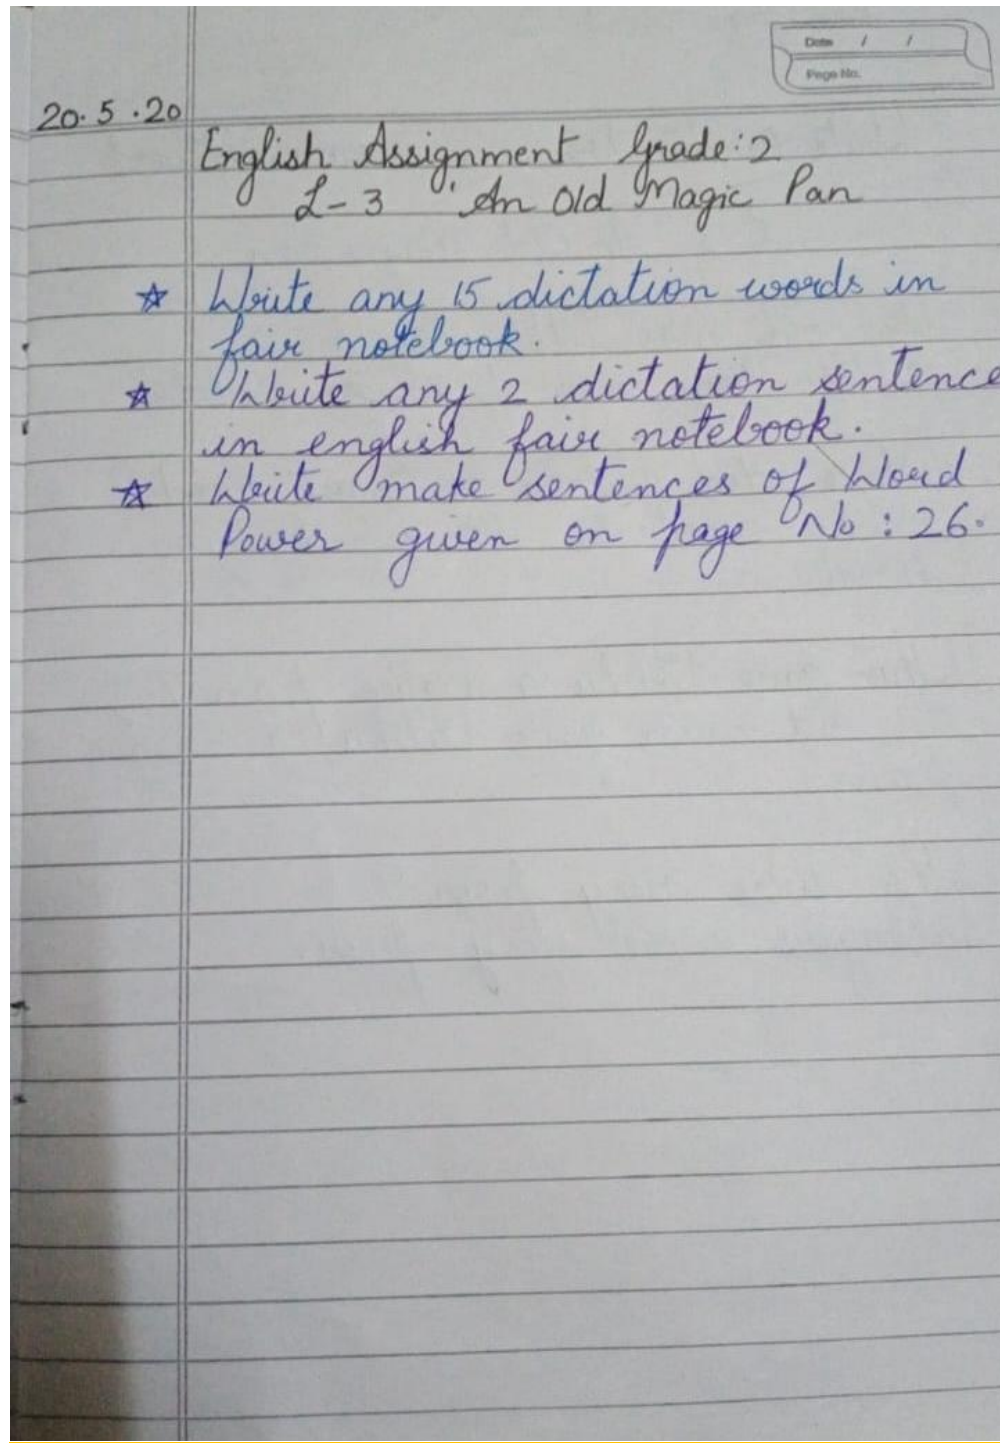 Date / /
Page No.
20.5.20
English Assignment Grade:2
L-3 'An Old Magic Pan
☆ Write any 15 dictation words in
fair notebook.
☆ Write any 2 dictation sentence
in english fair notebook.
☆ Write make sentences of Word
Power given on page No : 26.